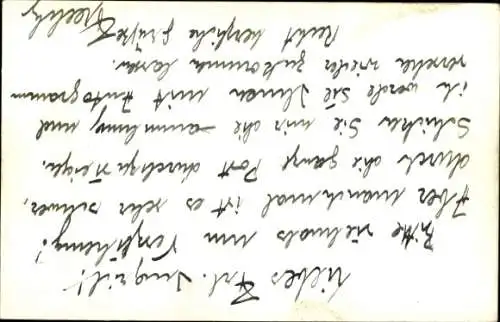 Liebes Frl. Ingrid!
Bitte vielmals um Verzeihung!
Aber manchmal ist es sehr schwer,
durch die ganze Post durchzusteigen.
Schicken Sie mir die Sammlung und
ich werde sie Ihnen mit Autogramm
versehen wieder zukommen lassen.
Recht herzliche Grüße